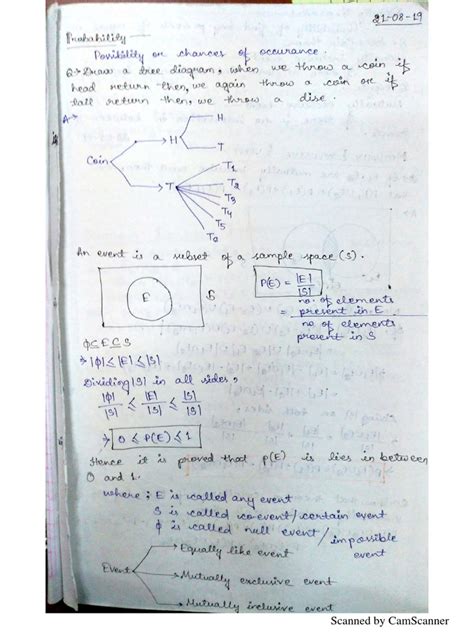 21-08-19
Probability —
Possibility or chances of occurance.
Q→ Draw a tree diagram, when we throw a coin if
head return then, we again throw a coin or if
tall return then, we throw a dise.
A→
H
H
T
Coin
T
T1
T2
T3
T4
T5
T6
An event is a subset of a sample space (S).
E
S
P(E) = |E| / |S|
= no. of elements present in E / no of elements present in S
ϕ ⊆ E ⊆ S
⇒ |ϕ| ≤ |E| ≤ |S|
Dividing |S| in all sides,
|ϕ|/|S| ≤ |E|/|S| ≤ |S|/|S|
⇒ 0 ≤ P(E) ≤ 1
Hence it is proved that P(E) is lies in between
0 and 1.
where; E is called any event
S is called event/certain event
ϕ is called null event/impossible
event
Equally like event
Event
Mutually exclusive event
Mutually inclusive event
Scanned by CamScanner